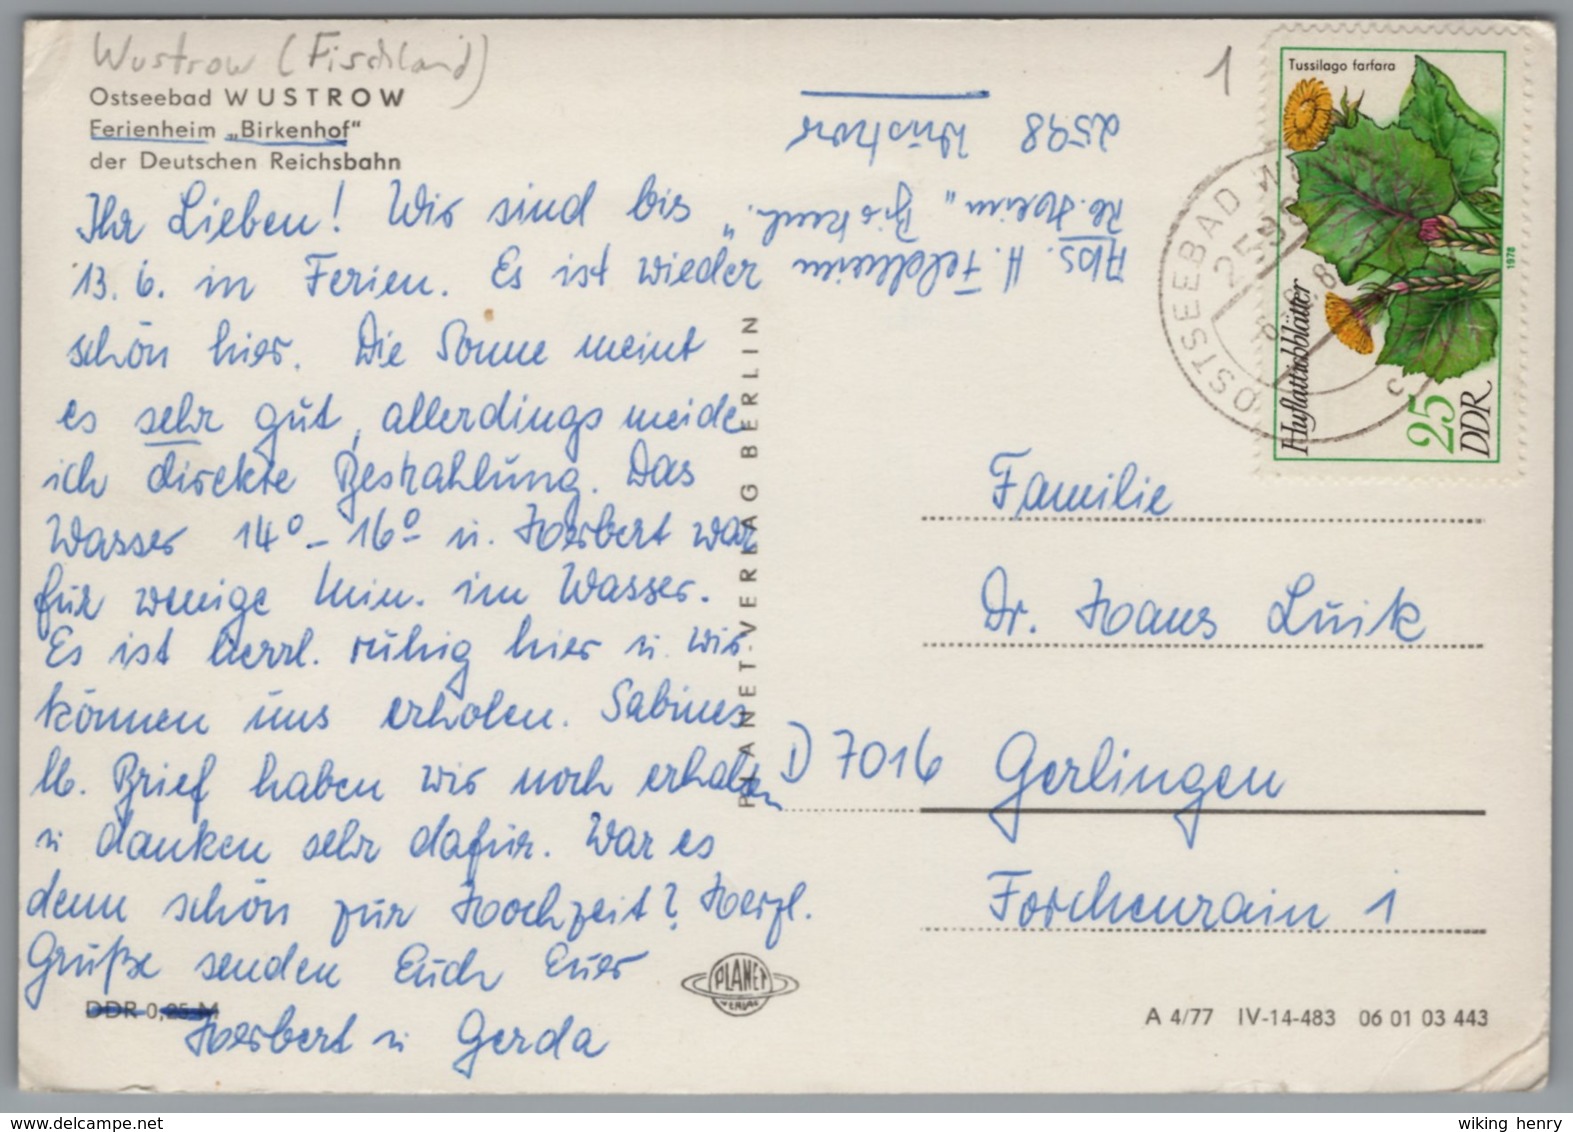 Wustrow (Fischland)
Ostseebad WUSTROW
Ferienheim „Birkenhof"
der Deutschen Reichsbahn
Ihr Lieben! Wir sind bis
13. 6. in Ferien. Es ist wieder
schön hier. Die Sonne meint
es sehr gut, allerdings meide
ich direkte Bestrahlung. Das
Wasser 14° – 16° u. Herbert war
für wenige Min. im Wasser.
Es ist herrl. ruhig hier u. wir
können uns erholen. Sabines
lb. Brief haben wir noch erhalten
u danken sehr dafür. War es
denn schön zur Hochzeit? Herzl.
Grüße senden Euch Eure
Herbert u Gerda
DDR 0,25 M
Abs. H. Feldheim
Rb. Heim „Birkenh."
2598 Wustrow
1
Tussilago farfara
Huflattichblätter
25
DDR
1978
OSTSEEBAD
2598
c
PLANET-VERLAG BERLIN
Familie
Dr. Hans Luik
D 7016 Gerlingen
Forchenrain 1
PLANET
VERLAG
A 4/77 IV-14-483 06 01 03 443
delcampe.net
wiking henry